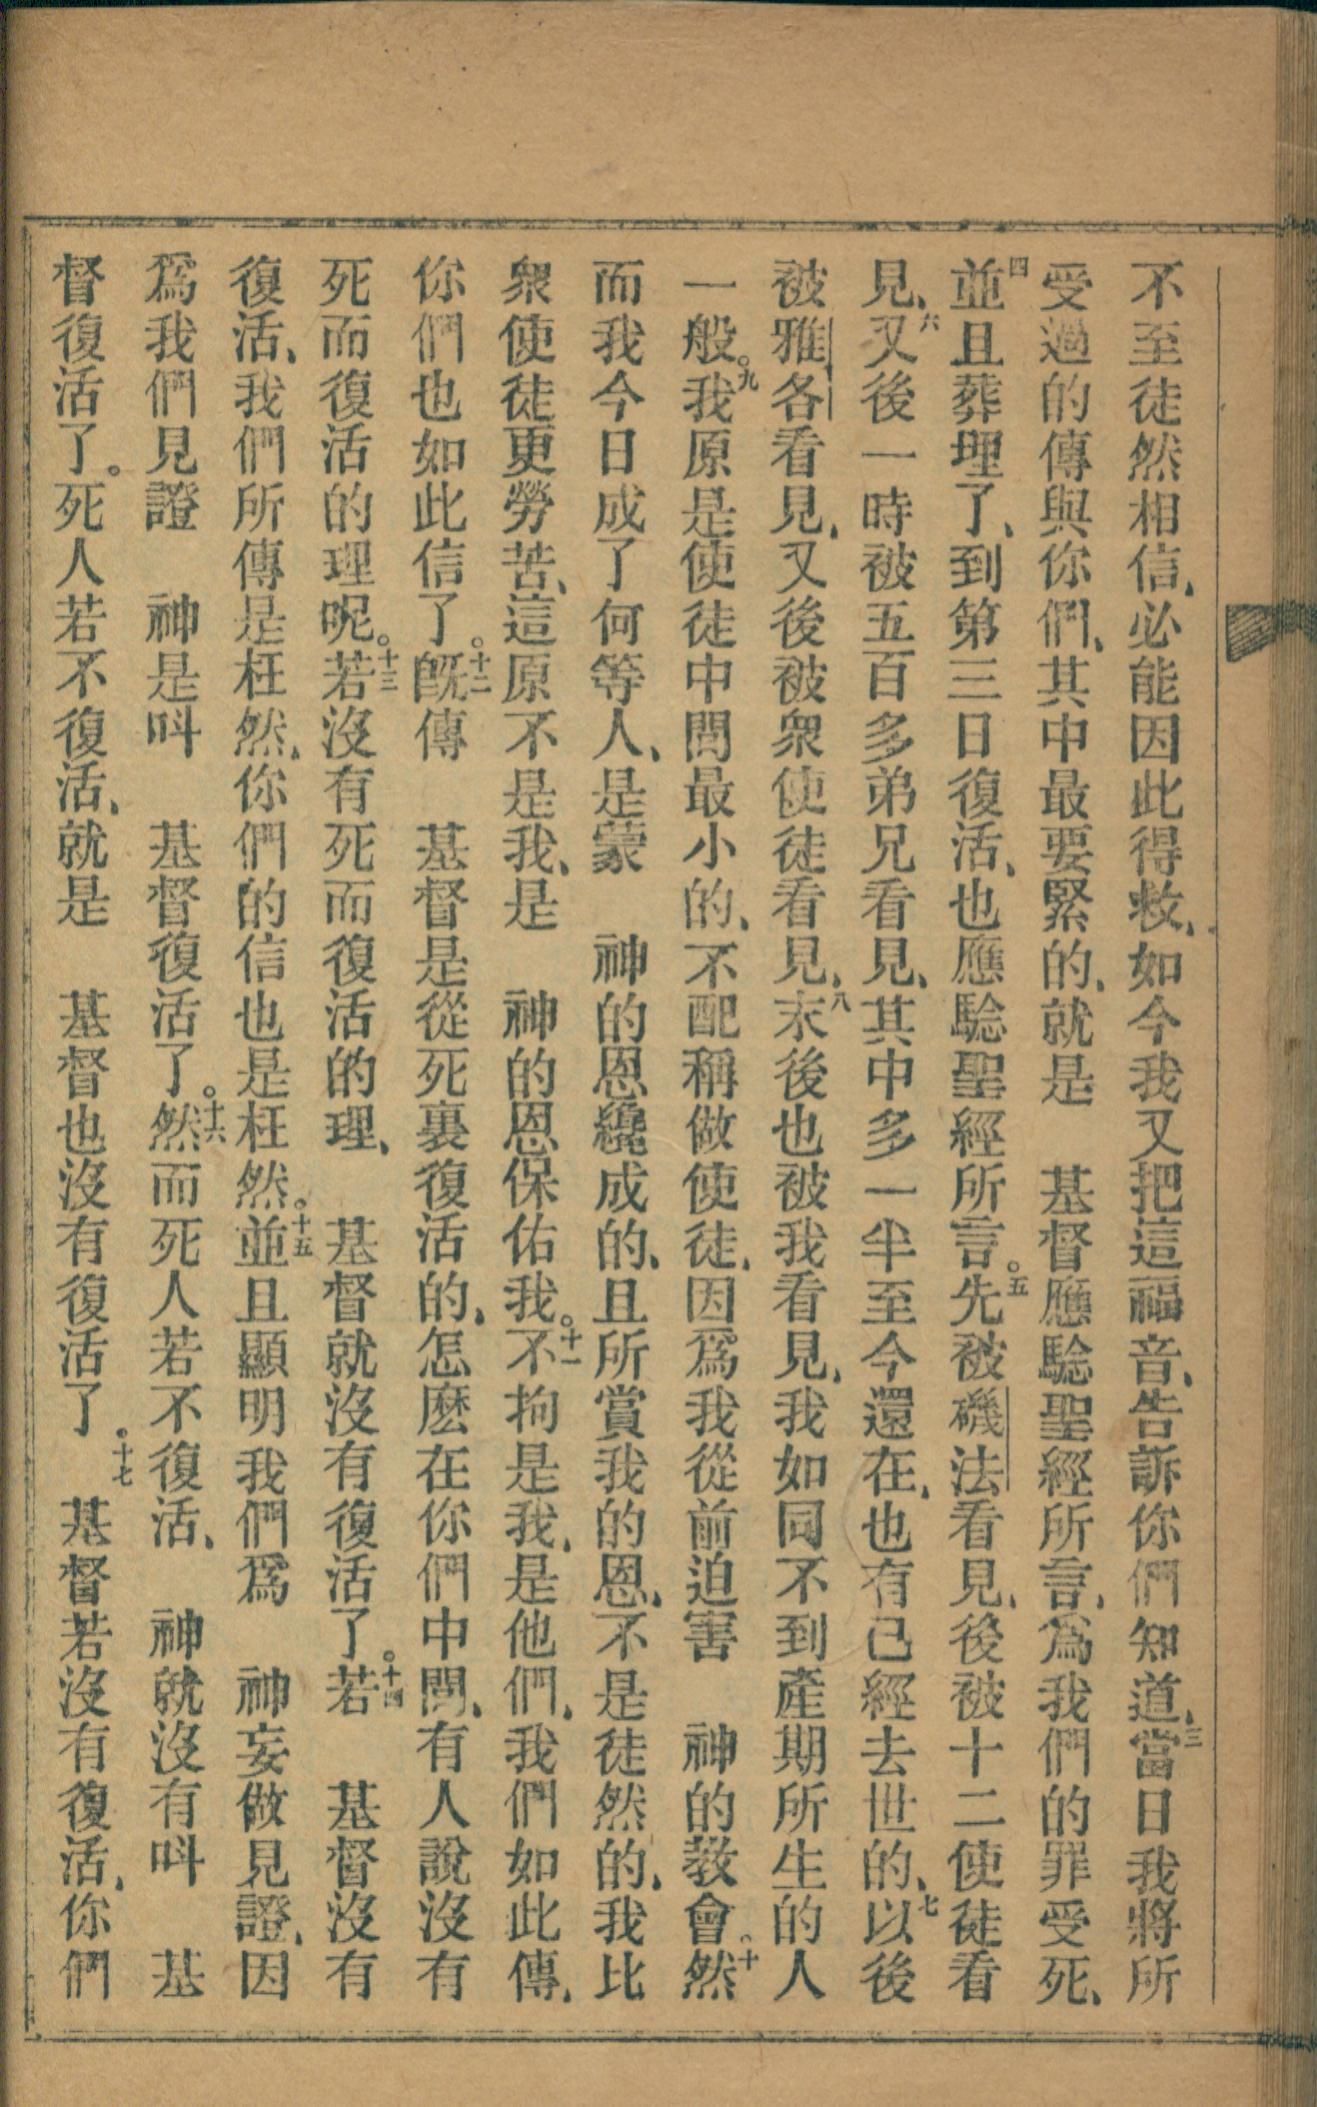 不至徒然相信、必能因此得救、如今我又把這福音、告訴你們知道、三當日我將所
受過的傳與你們、其中最要緊的、就是　基督應騐聖經所言、爲我們的罪受死、
四並且葬埋了、到第三日復活、也應騐聖經所言。五先被磯法看見、後被十二使徒看
見、六又後一時被五百多弟兄看見、其中多一半至今還在、也有已經去世的、七以後
被雅各看見、又後被衆使徒看見、八末後也被我看見、我如同不到產期所生的人
一般。九我原是使徒中間最小的、不配稱做使徒、因爲我從前迫害　神的敎會。十然
而我今日成了何等人、是蒙　神的恩纔成的、且所賞我的恩、不是徒然的、我比
衆使徒更勞苦、這原不是我、是　神的恩保佑我。十一不拘是我、是他們、我們如此傳、
你們也如此信了。十二旣傳　基督是從死裏復活的、怎麽在你們中間、有人說沒有
死而復活的理呢。十三若沒有死而復活的理、　基督就沒有復活了。十四若　基督沒有
復活、我們所傳是枉然、你們的信也是枉然。十五並且顯明我們爲　神妄做見證、因
爲我們見證　神是呌　基督復活了。十六然而死人若不復活、　神就沒有呌　基
督復活了。死人若不復活、就是　基督也沒有復活了。十七　基督若沒有復活、你們